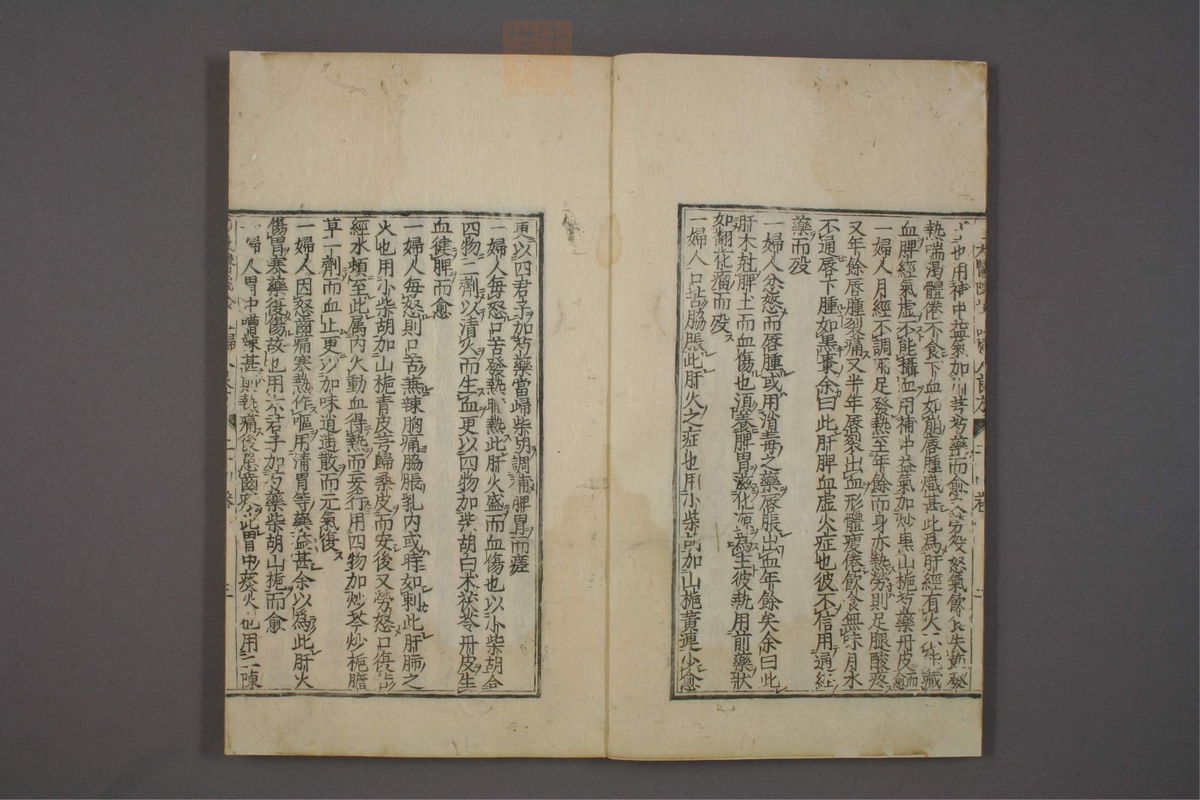 也用補中益氣加川芎芍藥而愈又勞役怒氣飲食失節發
熱喘渴體倦不食下血如崩唇腫熾甚此為肝經有火不能藏
血脾經氣虛不能攝血用補中益氣加炒黑山梔芍藥丹皮而愈
一婦人月經不調兩足發熱至年餘而身亦熱勞則足腿酸疼
又年餘唇腫裂痛又半年唇裂出血形體瘦倦飲食無味月水
不通唇下腫如黑棗余曰此肝脾血虛火症也彼不信用通經
藥而歿
一婦人忿怒而唇腫或用消毒之藥唇脹出血年餘矣余曰此
肝木尅脾土而血傷也須養脾胃滋化源為主彼執用前藥狀
如翻花瘤而歿
一婦人口苦脇脹此肝火之症也用小柴胡加山梔黃連少愈
更以四君子加芍藥當歸柴胡調補脾胃而瘥
一婦人每怒口苦發熱晡熱此肝火盛而血傷也以小柴胡合
四物二劑以清火而生血更以四物加柴胡白朮茯苓丹皮生
血健脾而愈
一婦人每怒則口苦兼辣胸痛脇脹乳內或時如刺此肝肺之
火也用小柴胡加山梔青皮芎歸桑皮而安後又勞怒口復
經水頓至此属肉火動血得熱而妄行用四物加炒芩炒梔膽
草一劑而血止更以加味逍遙散而元氣復
一婦人因怒齒痛寒熱作嘔用清胃等藥益甚余以為此肝火
傷胃寒藥復傷故也用六君子加芍藥柴胡山梔而愈
一婦人胃中嘈辣甚則熱痛後患齒痛此胃中痰火也用二陳